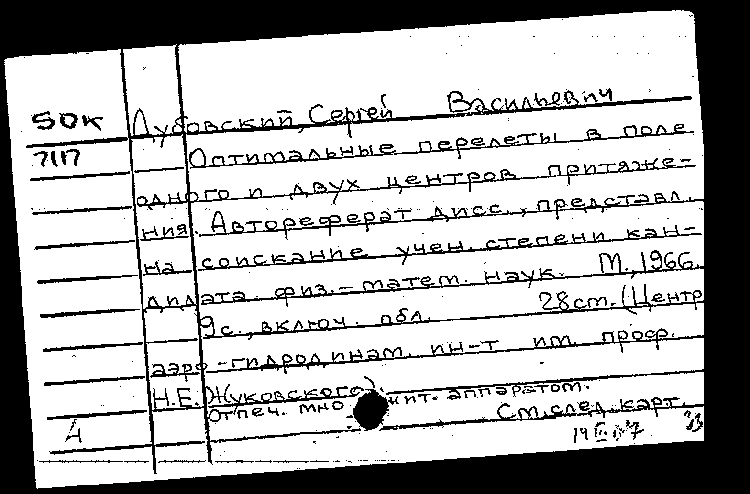 50к Дубовский, Сергей Васильевич
71П Оптимальные перелеты в поле
одного и двух центров притяже-
ния. Автореферат дисс., представл.
на соискание учен. степени кан-
дидата физ.-матем. наук. М., 1966.
9с., включ. обл. 28см. (Центр
аэро-гидродинам. ин-т им. проф.
Н.Е. Жуковского).
Отпеч. мно жит. аппаратом.
См. след. карт.
4